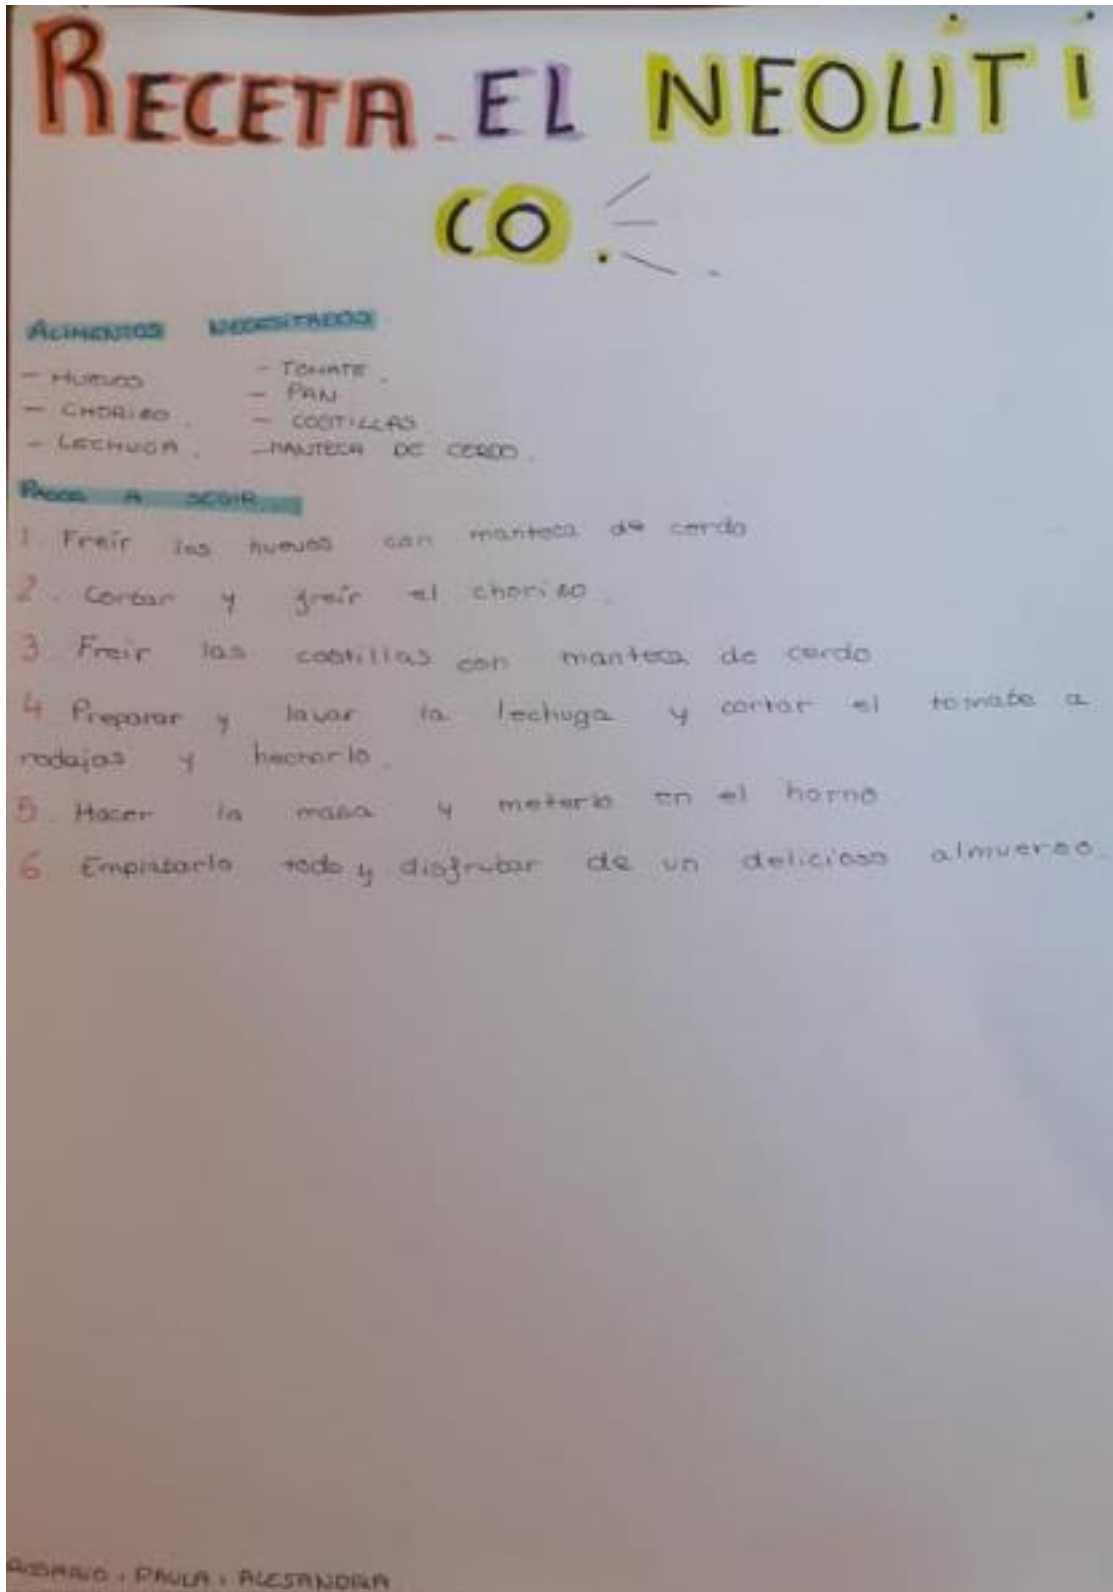 RECETA EL NEOLITI
CO.
ALIMENTOS NECESITADOS
- HUEVOS
- CHORIZO.
- LECHUGA.
- TOMATE.
- PAN
- COSTILLAS
- MANTECA DE CERDO.
PASOS A SEGIR
1. Freír los huevos con manteca de cerdo
2. Cortar y freír el chorizo.
3 Freir las costillas con manteca de cerdo
4 Preparar y lavar la lechuga y cortar el tomate a
rodajas y
5. Hacer la masa y meterlo en el horno
6 todo y disfrutar de un delicioso almuerzo.
PAULA ALESANDRA